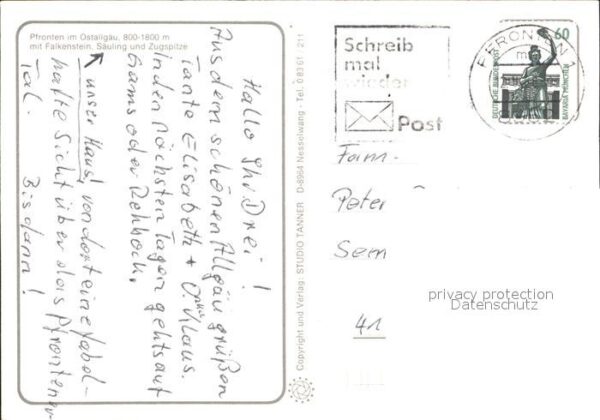 Pfronten im Ostallgäu, 800-1800 m
mit Falkenstein, Säuling und Zugspitze
Hallo Ihr Drei!
Aus dem schönen Allgäu grüßen
Tante Elisabeth + Onkel Klaus.
In den nächsten Tagen gehts auf
Gams oder Rehbock.
↖ unser Haus, von dort eine fabel-
hafte Sicht über das Pfrontener
Tal. Bis dann!
Copyright und Verlag: STUDIO TANNER D-8964 Nesselwang - Tel. 08361 / 211
Schreib
mal
wieder
Post
PFRONTEN 1
60
DEUTSCHE BUNDESPOST
BAVARIA MÜNCHEN
Fam.
Peter
Sem
41
privacy protection
Datenschutz